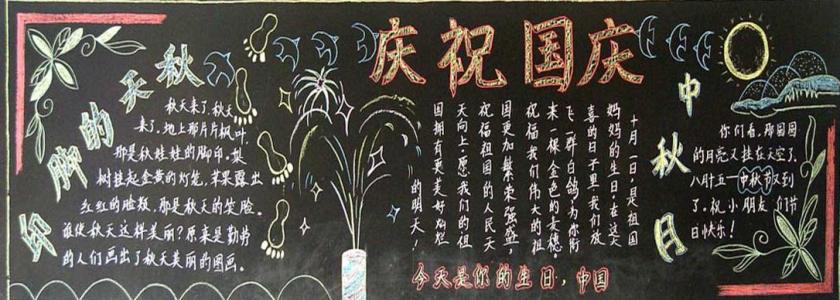 秋天的脚印
秋天来了,秋天
来了,地上那片片枫叶,
那是秋娃娃的脚印。某
树挂起金黄的灯笼,苹果露出
红红的脸颊,那是秋天的笑脸。
谁使秋天这样美丽?原来是勤劳
的人们画出了秋天美丽的图画。
庆祝国庆
十月一日是祖国
妈妈的生日,在这大
喜的日子里,我们放
飞一群白鸽,为你衔
来一棵金色的麦穗,
祝福我们伟大的祖
国更加繁荣强盛。
祝福祖国的人民天
天向上,愿我们的祖
国拥有更美好灿烂
的明天!
今天是你的生日,中国
中秋月
你们看,那圆圆
的月亮又挂在天空了,
八月十五——中秋节又到
了,祝小朋友们节
日快乐!